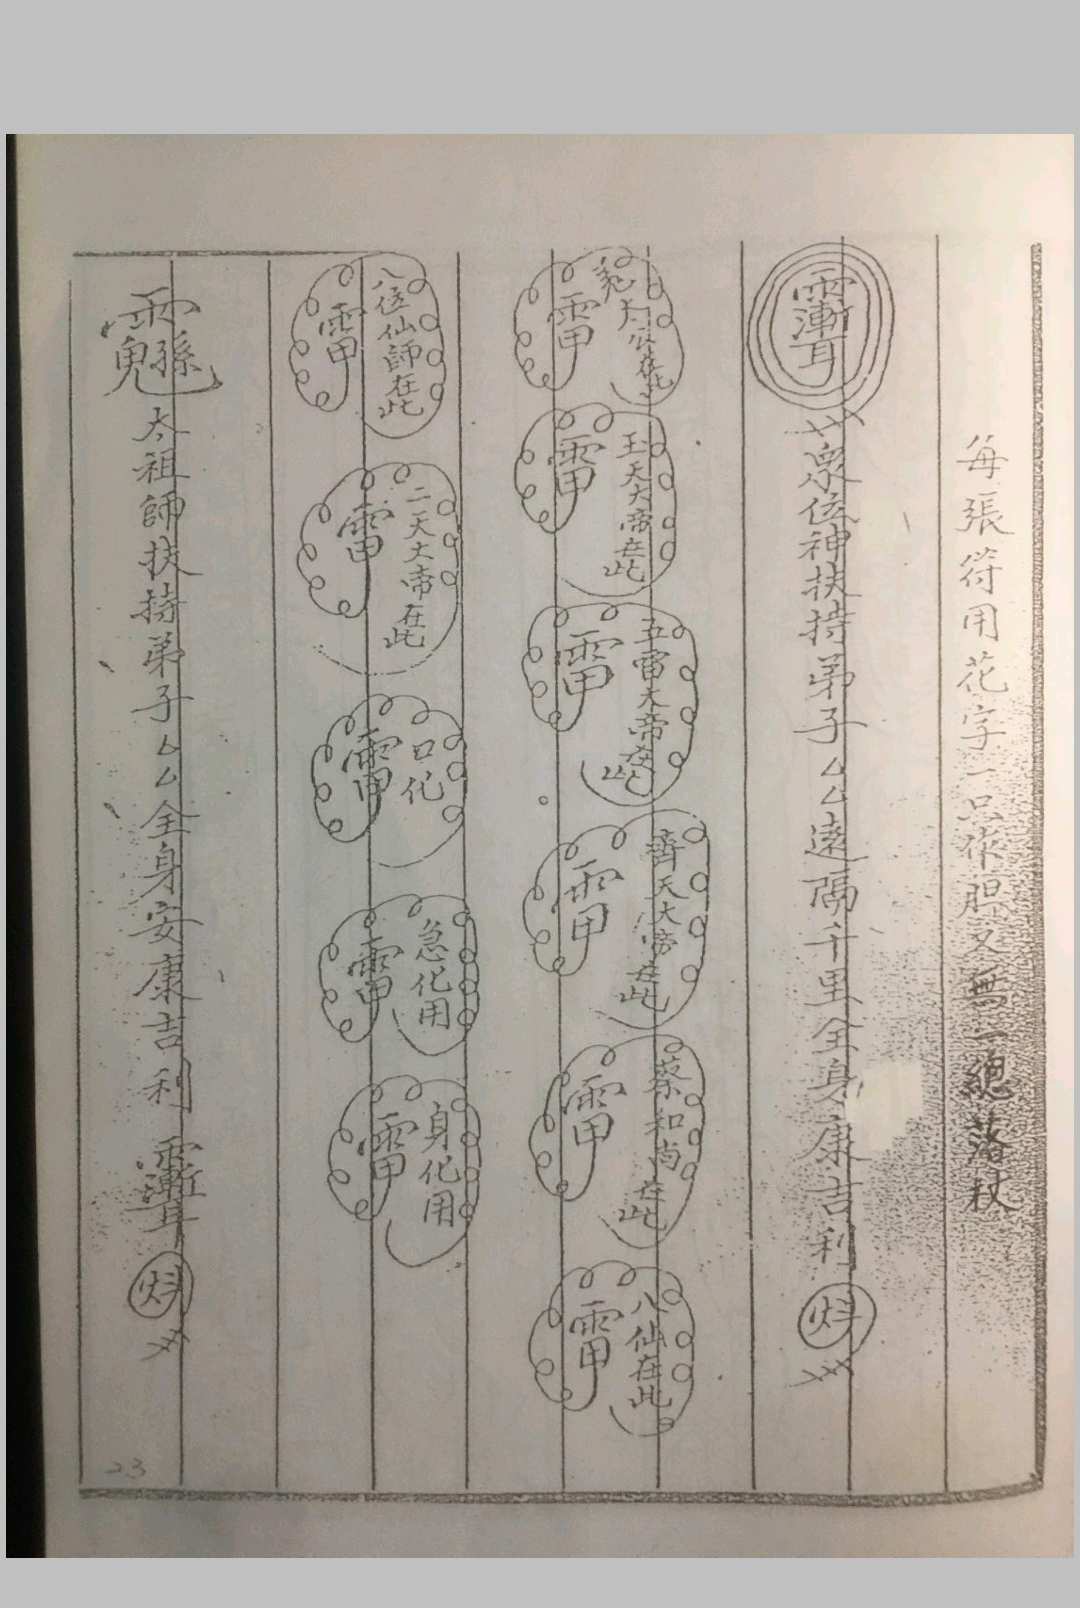 每張符用花字一只作胆又無一總落杖
衆位神扶持弟子厶厶遠隔千里全身康吉利
雷 公在此
雷 玉天大帝在此
雷 五雷大帝在此
雷 齊天大帝在此
雷 蔡和尚在此
雷 八仙在此
雷 八位仙師在此
雷 二天大帝在此
雷 口化
雷 急化用
雷 身化用
太祖師扶持弟子厶厶全身安康吉利
23